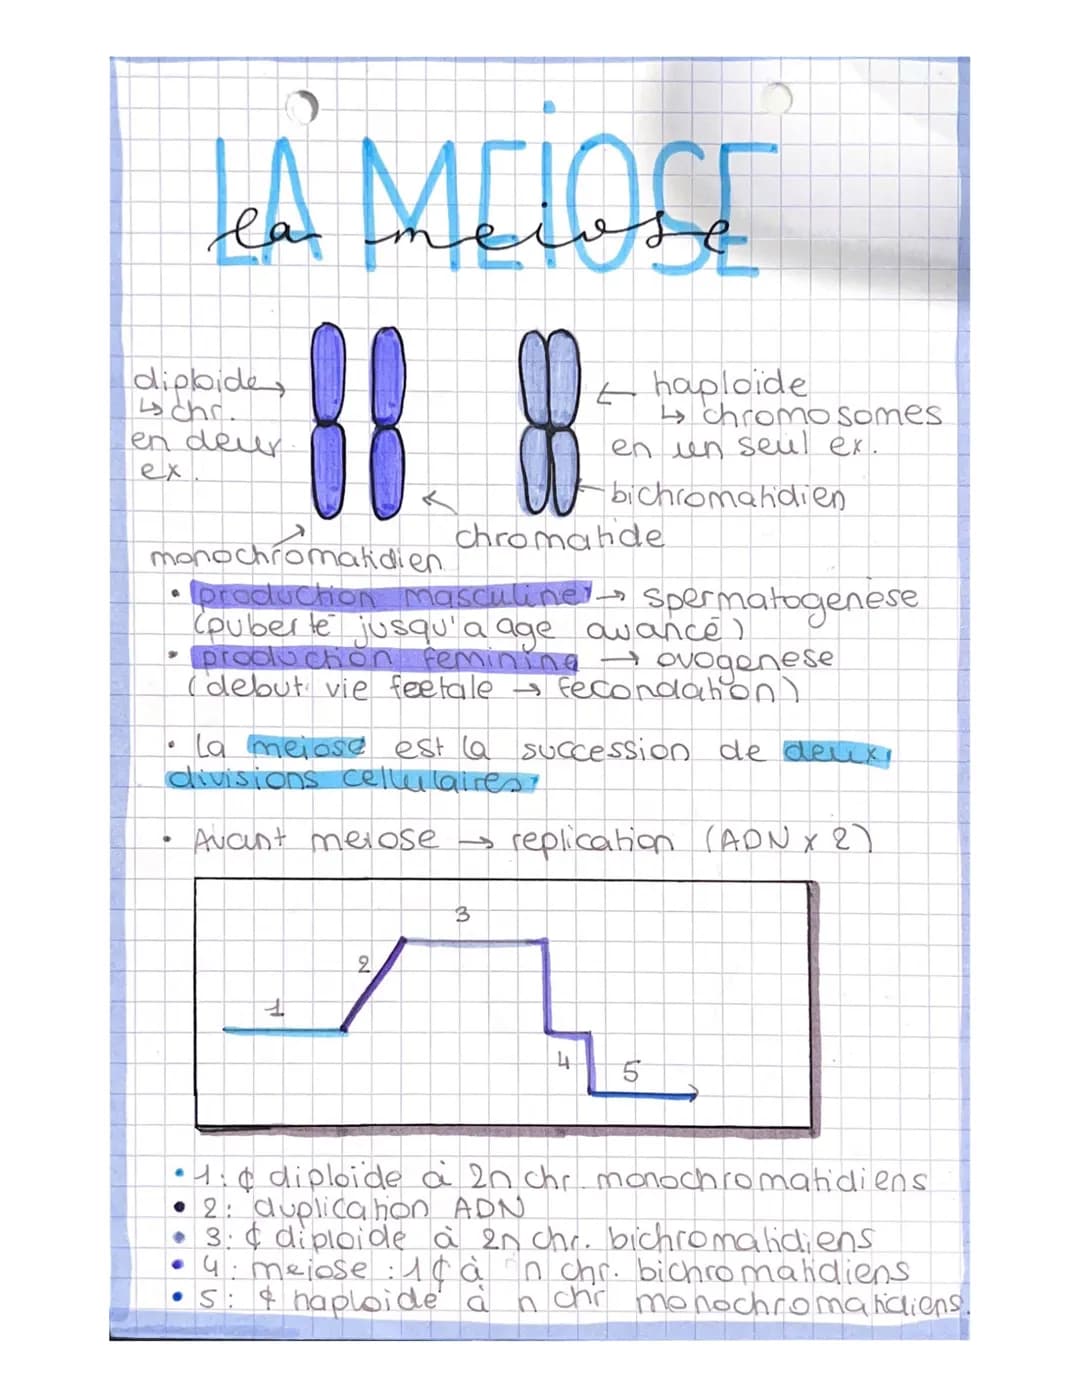 LA MEIOSE
la meiose
diploide
↳ chr.
en deux
ex.
← haploïde
↳ chromosomes
en un seul ex.
bichromatidien
chromatide
monochromatidien
• production masculine → spermatogenèse
(puberté jusqu'a age avancé)
• production feminine → ovogenese
(debut vie foetale → fecondation)
• La meiose est la succession de deux
divisions cellulaires
• Avant meiose → replication (ADN x 2)
3
2
1
4
5
• 1: ¢ diploïde à 2n chr. monochromatidiens
• 2: duplication ADN
• 3: ¢ diploïde à 2n chr. bichromatidiens
• 4: meiose : 1¢ à n chr. bichromatidiens
• 5: ¢ haploïde à n chr monochromatidiens.